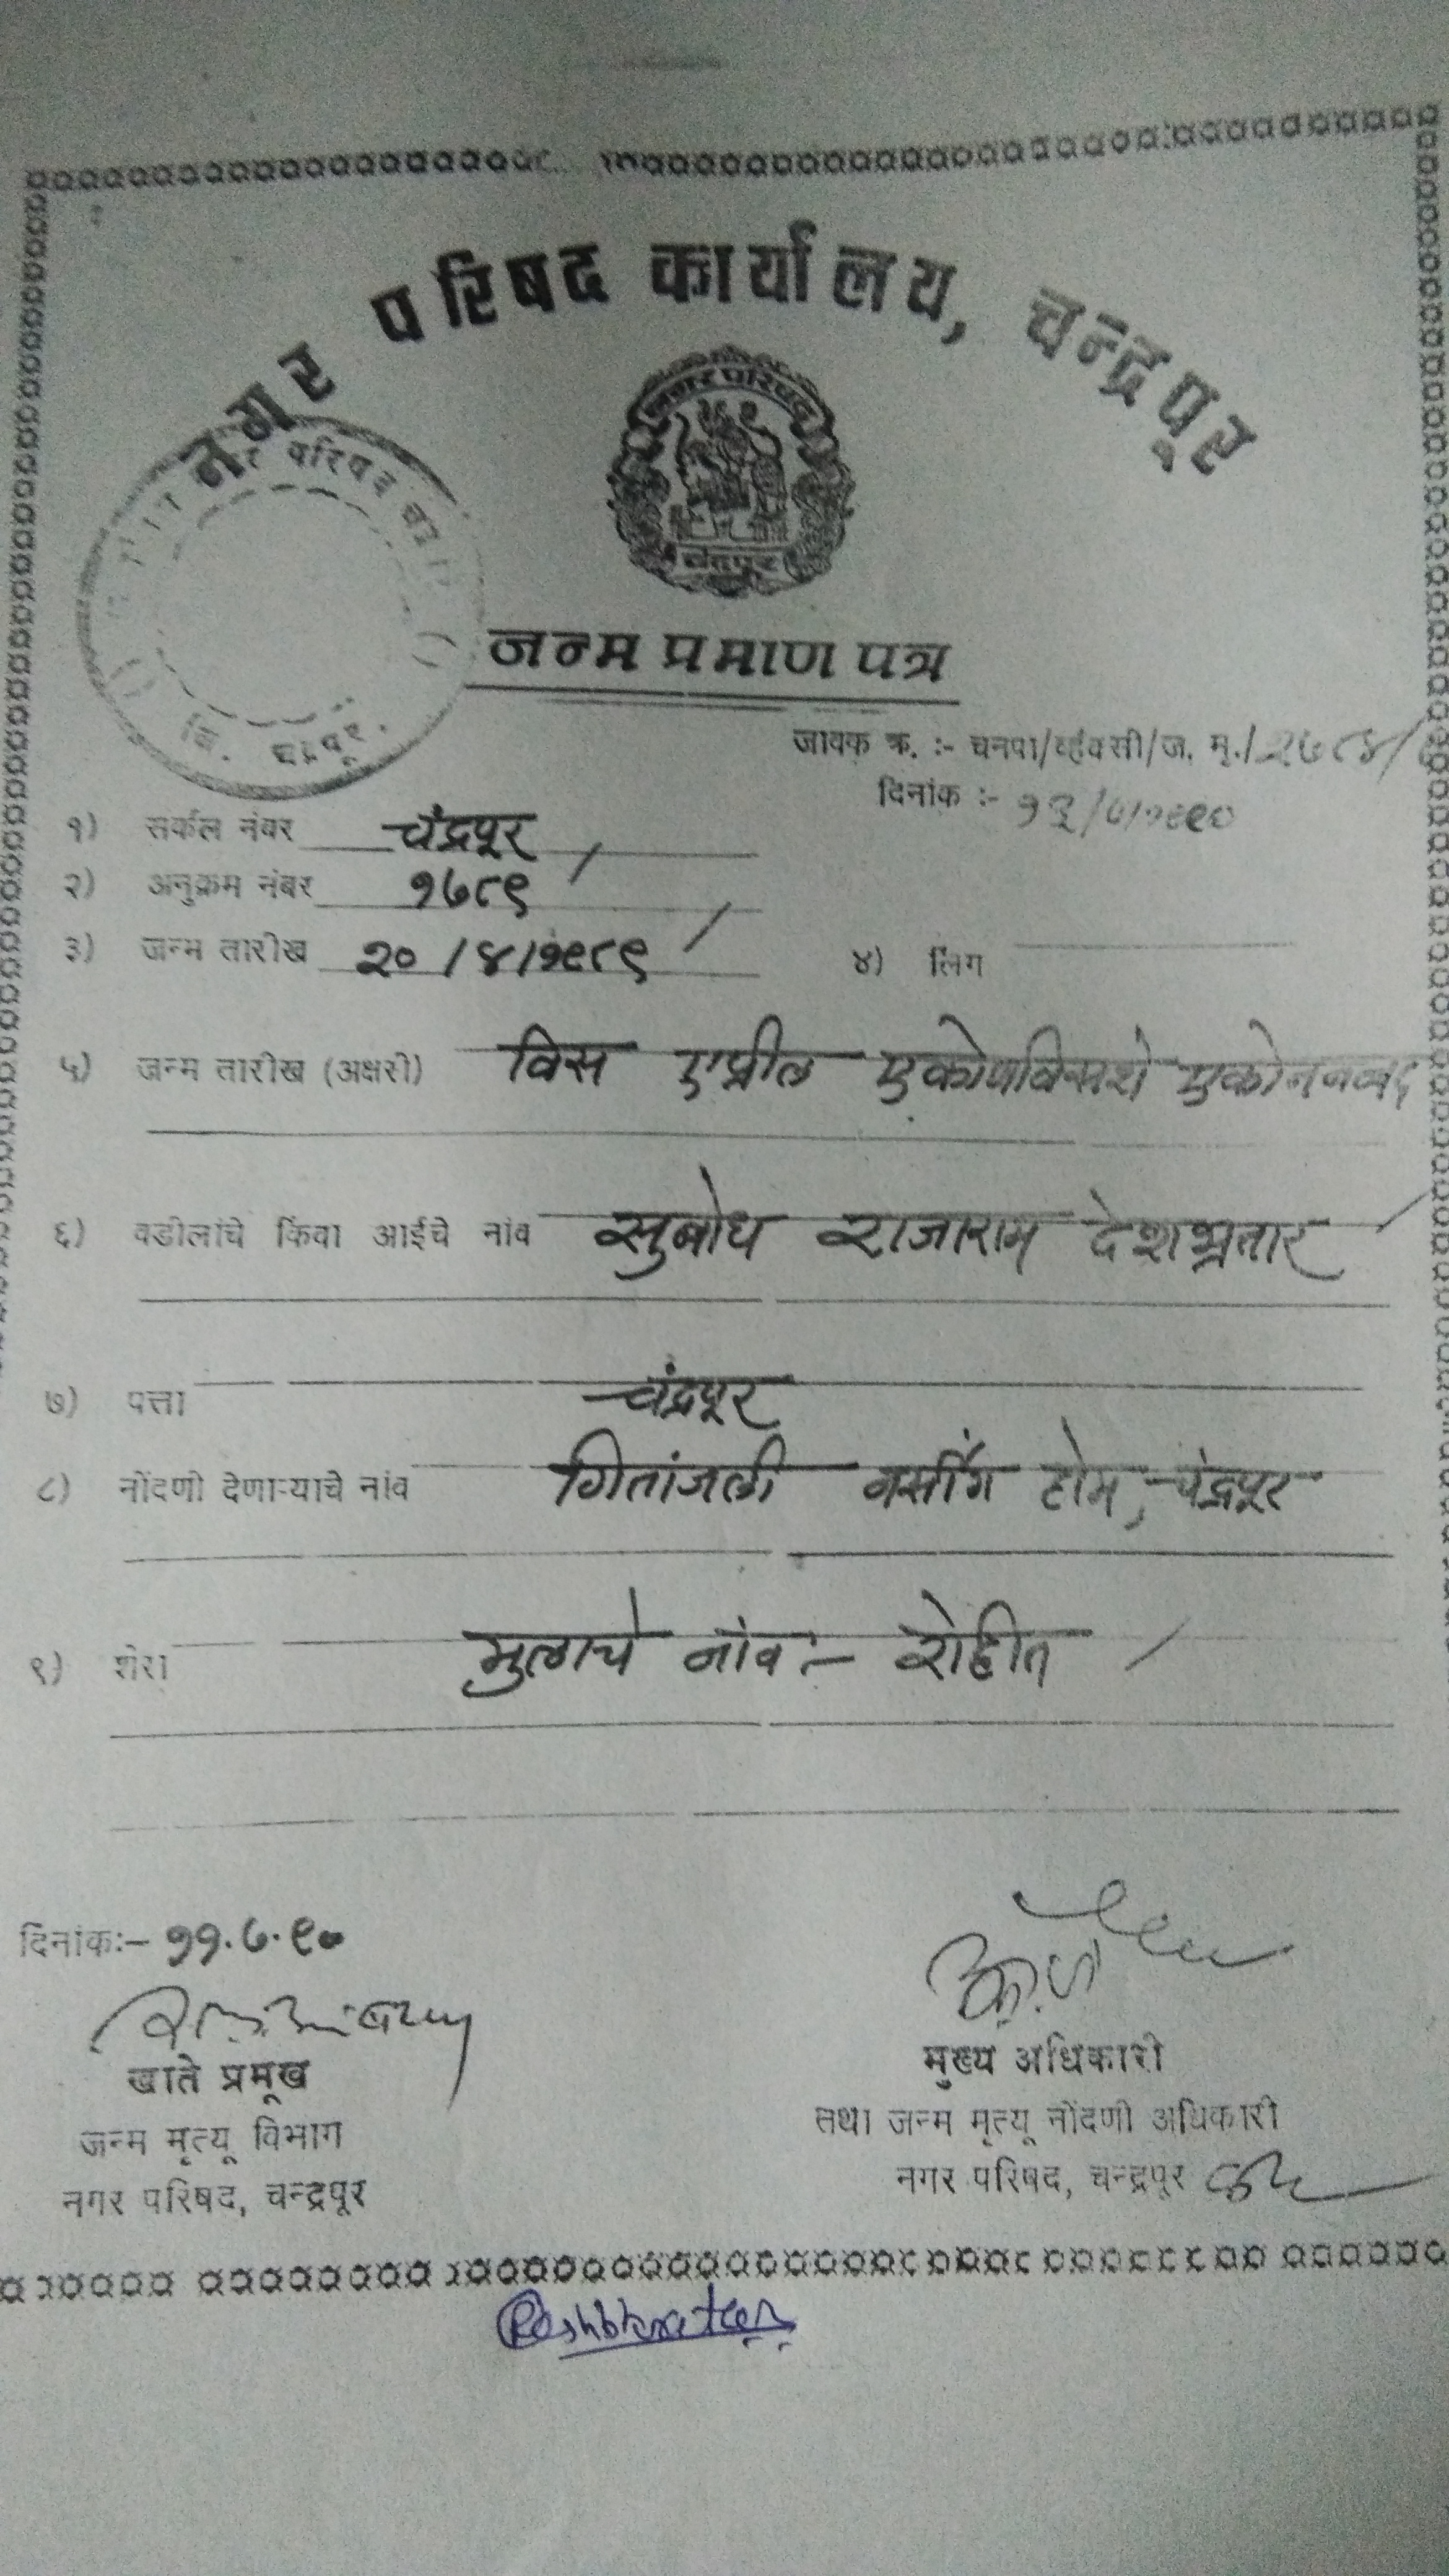 नगर परिषद कार्यालय, चन्द्रपूर
नगर परिषद
चंद्रपूर
परिषद
जि. चंद्रपूर.
जन्म प्रमाण पत्र
जावक क्र. :- चनपा/व्हंवसी/ज. मृ./२७८४/
दिनांक :- १३/७/१९९०
१) सर्कल नंबर चंद्रपूर
२) अनुक्रम नंबर १७८९
३) जन्म तारीख २०/४/१९८९ ४) लिंग
५) जन्म तारीख (अक्षरी) विस एप्रील एकोणविसशे एकोननव्वद
६) वडीलांचे किंवा आईचे नांव सुबोध राजाराम देशभ्रतार
७) पत्ता चंद्रपूर
८) नोंदणी देणाऱ्याचे नांव गितांजली नर्सींग होम, चंद्रपूर
९) शेरा मुलाचे नांव :- रोहीत
दिनांक:- ११.७.९०
खाते प्रमूख
जन्म मृत्यू विभाग
नगर परिषद, चन्द्रपूर
मुख्य अधिकारी
तथा जन्म मृत्यू नोंदणी अधिकारी
नगर परिषद, चन्द्रपूर